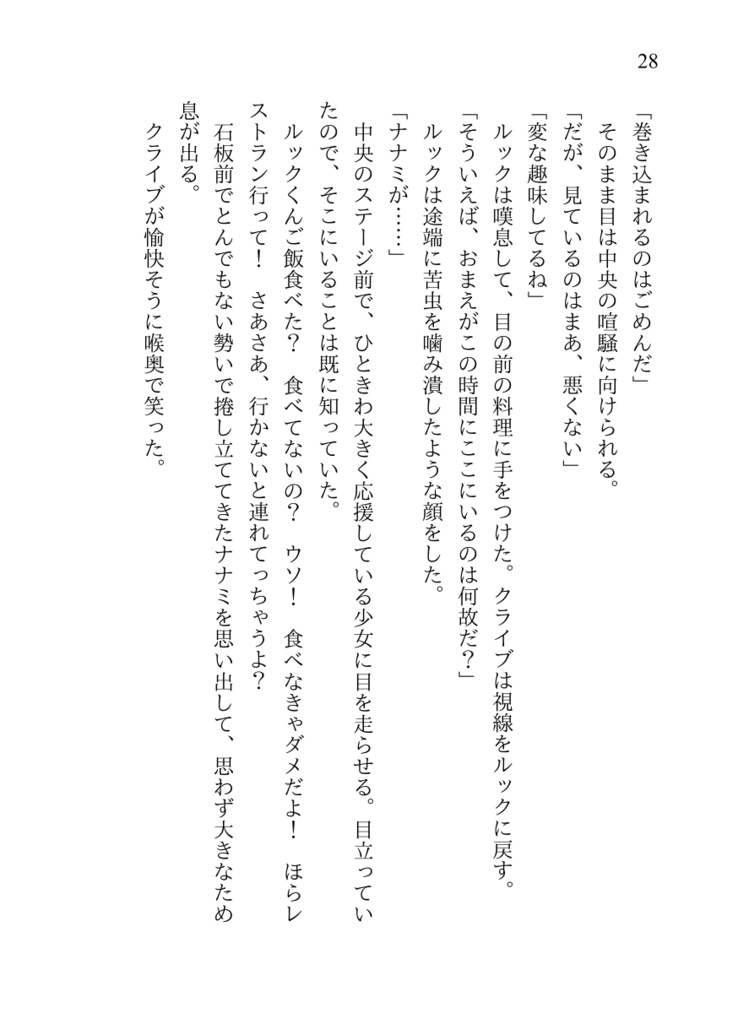 28
「巻き込まれるのはごめんだ」
　そのまま目は中央の喧騒に向けられる。
「だが、見ているのはまあ、悪くない」
「変な趣味してるね」
　ルックは嘆息して、目の前の料理に手をつけた。クライブは視線をルックに戻す。
「そういえば、おまえがこの時間にここにいるのは何故だ？」
　ルックは途端に苦虫を噛み潰したような顔をした。
「ナナミが……」
　中央のステージ前で、ひときわ大きく応援している少女に目を走らせる。目立ってい
たので、そこにいることは既に知っていた。
　ルックくんご飯食べた？　食べてないの？　ウソ！　食べなきゃダメだよ！　ほらレ
ストラン行って！　さあさあ、行かないと連れてっちゃうよ？
　石板前でとんでもない勢いで捲し立ててきたナナミを思い出して、思わず大きなため
息が出る。
　クライブが愉快そうに喉奥で笑った。